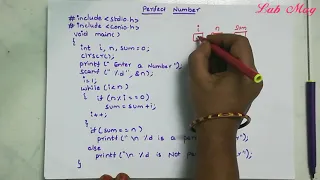 Lab Mug
Perfect Number
i n sum
# include <stdio.h>
# include <conio.h>
void main()
{
int i, n, sum=0;
clrscr();
printf(" Enter a Number");
scanf(" %d", &n);
i=1;
while (i<n)
{ if(n%i==0)
sum=sum+i;
i++;
}
if(sum==n)
printf("\n %d is a
else
printf("\n %d is Not
}